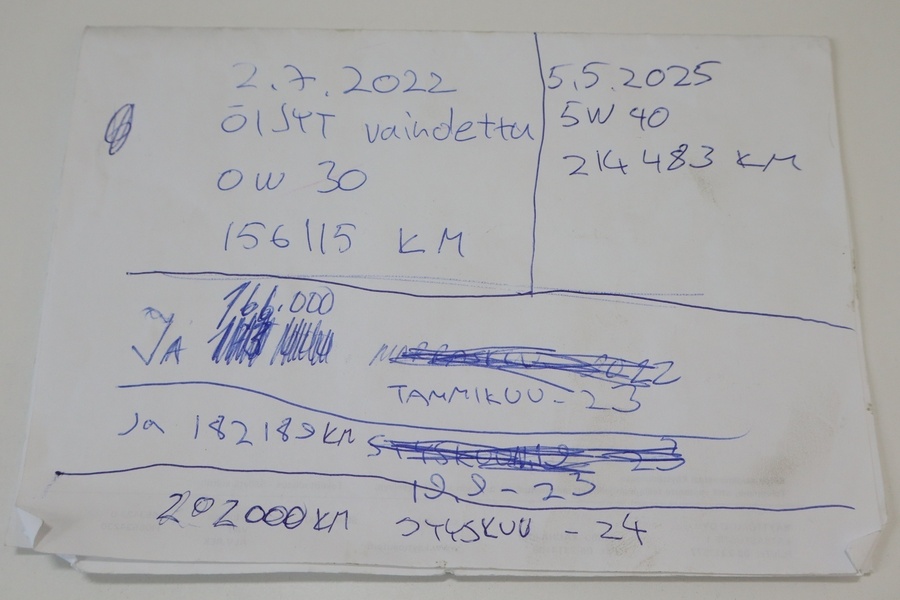 2.7.2022
ÖlJYT vaihdettu
0W 30
156115 KM
5.5.2025
5W 40
214 483 KM
166.000
JA
2022
TAMMIKUU - 23
Ja 182189 KM
SYYSKUU - 23
19.9 - 23
202000 KM SYYSKUU - 24